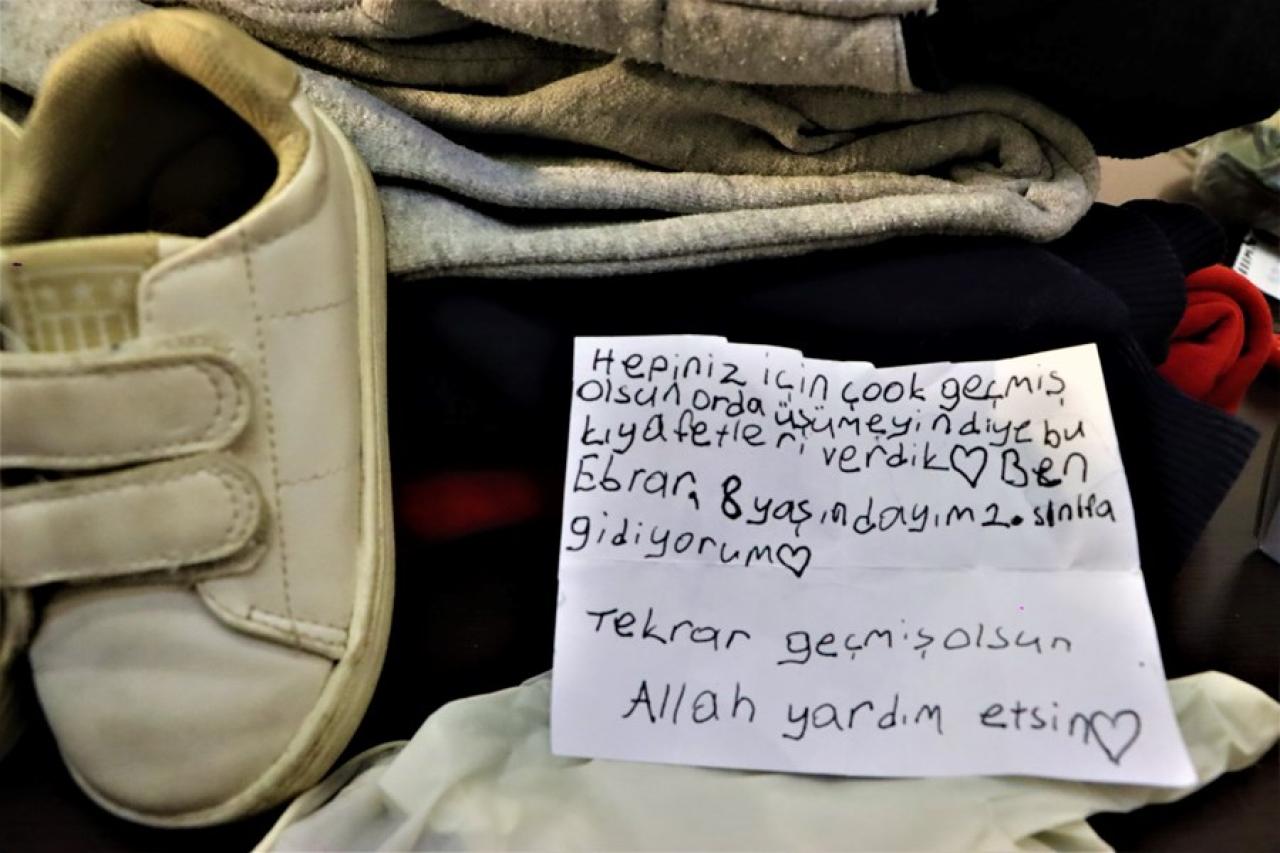 Hepiniz için çook geçmiş
olsun orda üşümeyin diye bu
kıyafetleri verdik♡ Ben
Ebrar, 8 yaşındayım 2. sınıfa
gidiyorum♡
Tekrar geçmiş olsun
Allah yardım etsin♡